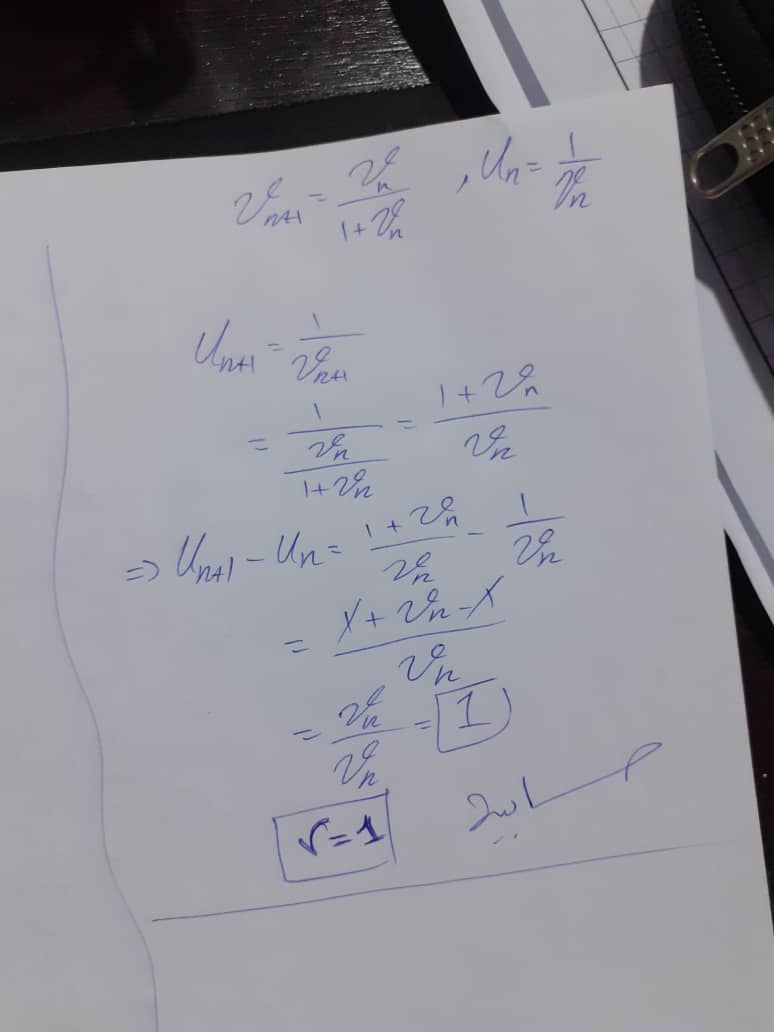 𝒱ₙ₊₁ = 𝒱ₙ / (1 + 𝒱ₙ) , Uₙ = 1 / 𝒱ₙ
Uₙ₊₁ = 1 / 𝒱ₙ₊₁
= 1 / (𝒱ₙ / (1 + 𝒱ₙ)) = (1 + 𝒱ₙ) / 𝒱ₙ
⇒ Uₙ₊₁ - Uₙ = (1 + 𝒱ₙ) / 𝒱ₙ - 1 / 𝒱ₙ
= (1 + 𝒱ₙ - 1) / 𝒱ₙ
= 𝒱ₙ / 𝒱ₙ = 1
r = 1